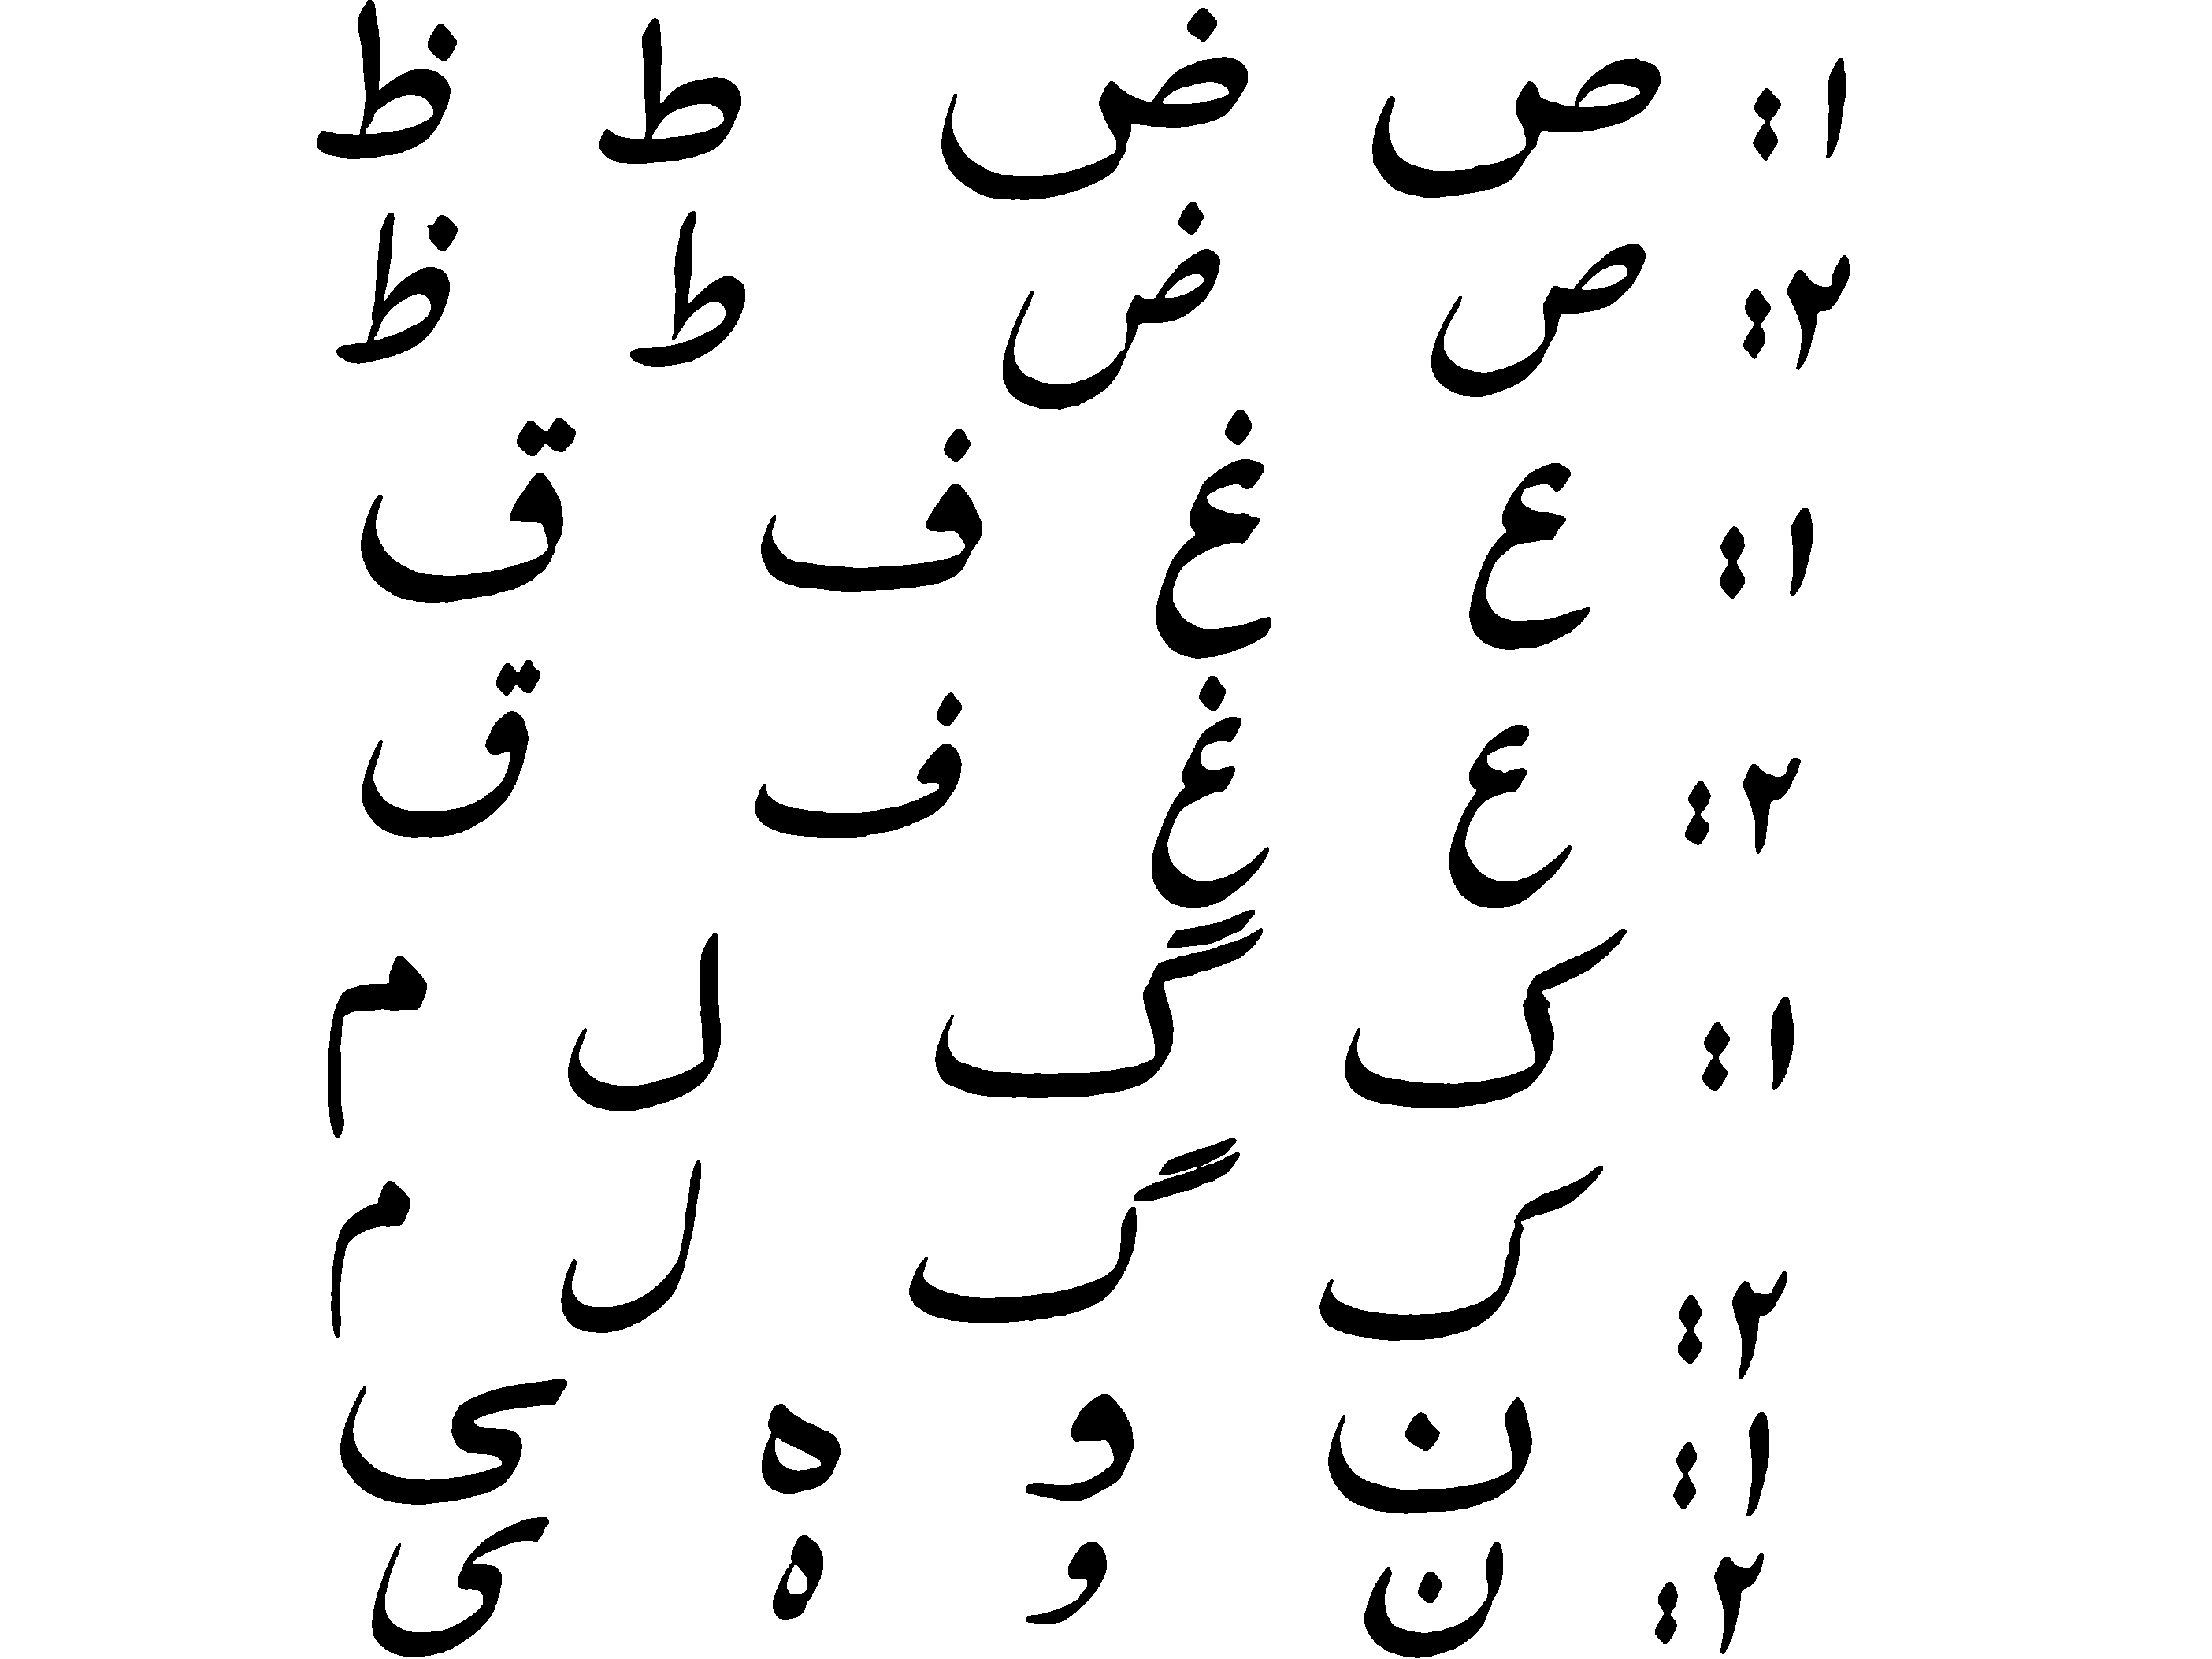 ۱: ص ض ط ظ
۲: ص ض ط ظ
۱: ع غ ف ق
۲: ع غ ف ق
۱: ک گ ل م
۲: ک گ ل م
۱: ن و ه ی
۲: ن و ه ی